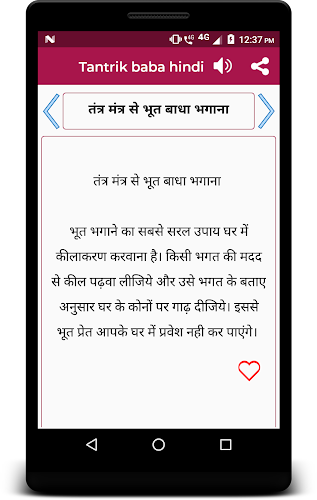 4G 4G 12:37 PM
Tantrik baba hindi
तंत्र मंत्र से भूत बाधा भगाना
तंत्र मंत्र से भूत बाधा भगाना
भूत भगाने का सबसे सरल उपाय घर में
कीलाकरण करवाना है। किसी भगत की मदद
से कील पढ़वा लीजिये और उसे भगत के बताए
अनुसार घर के कोनों पर गाढ़ दीजिये। इससे
भूत प्रेत आपके घर में प्रवेश नही कर पाएंगे।